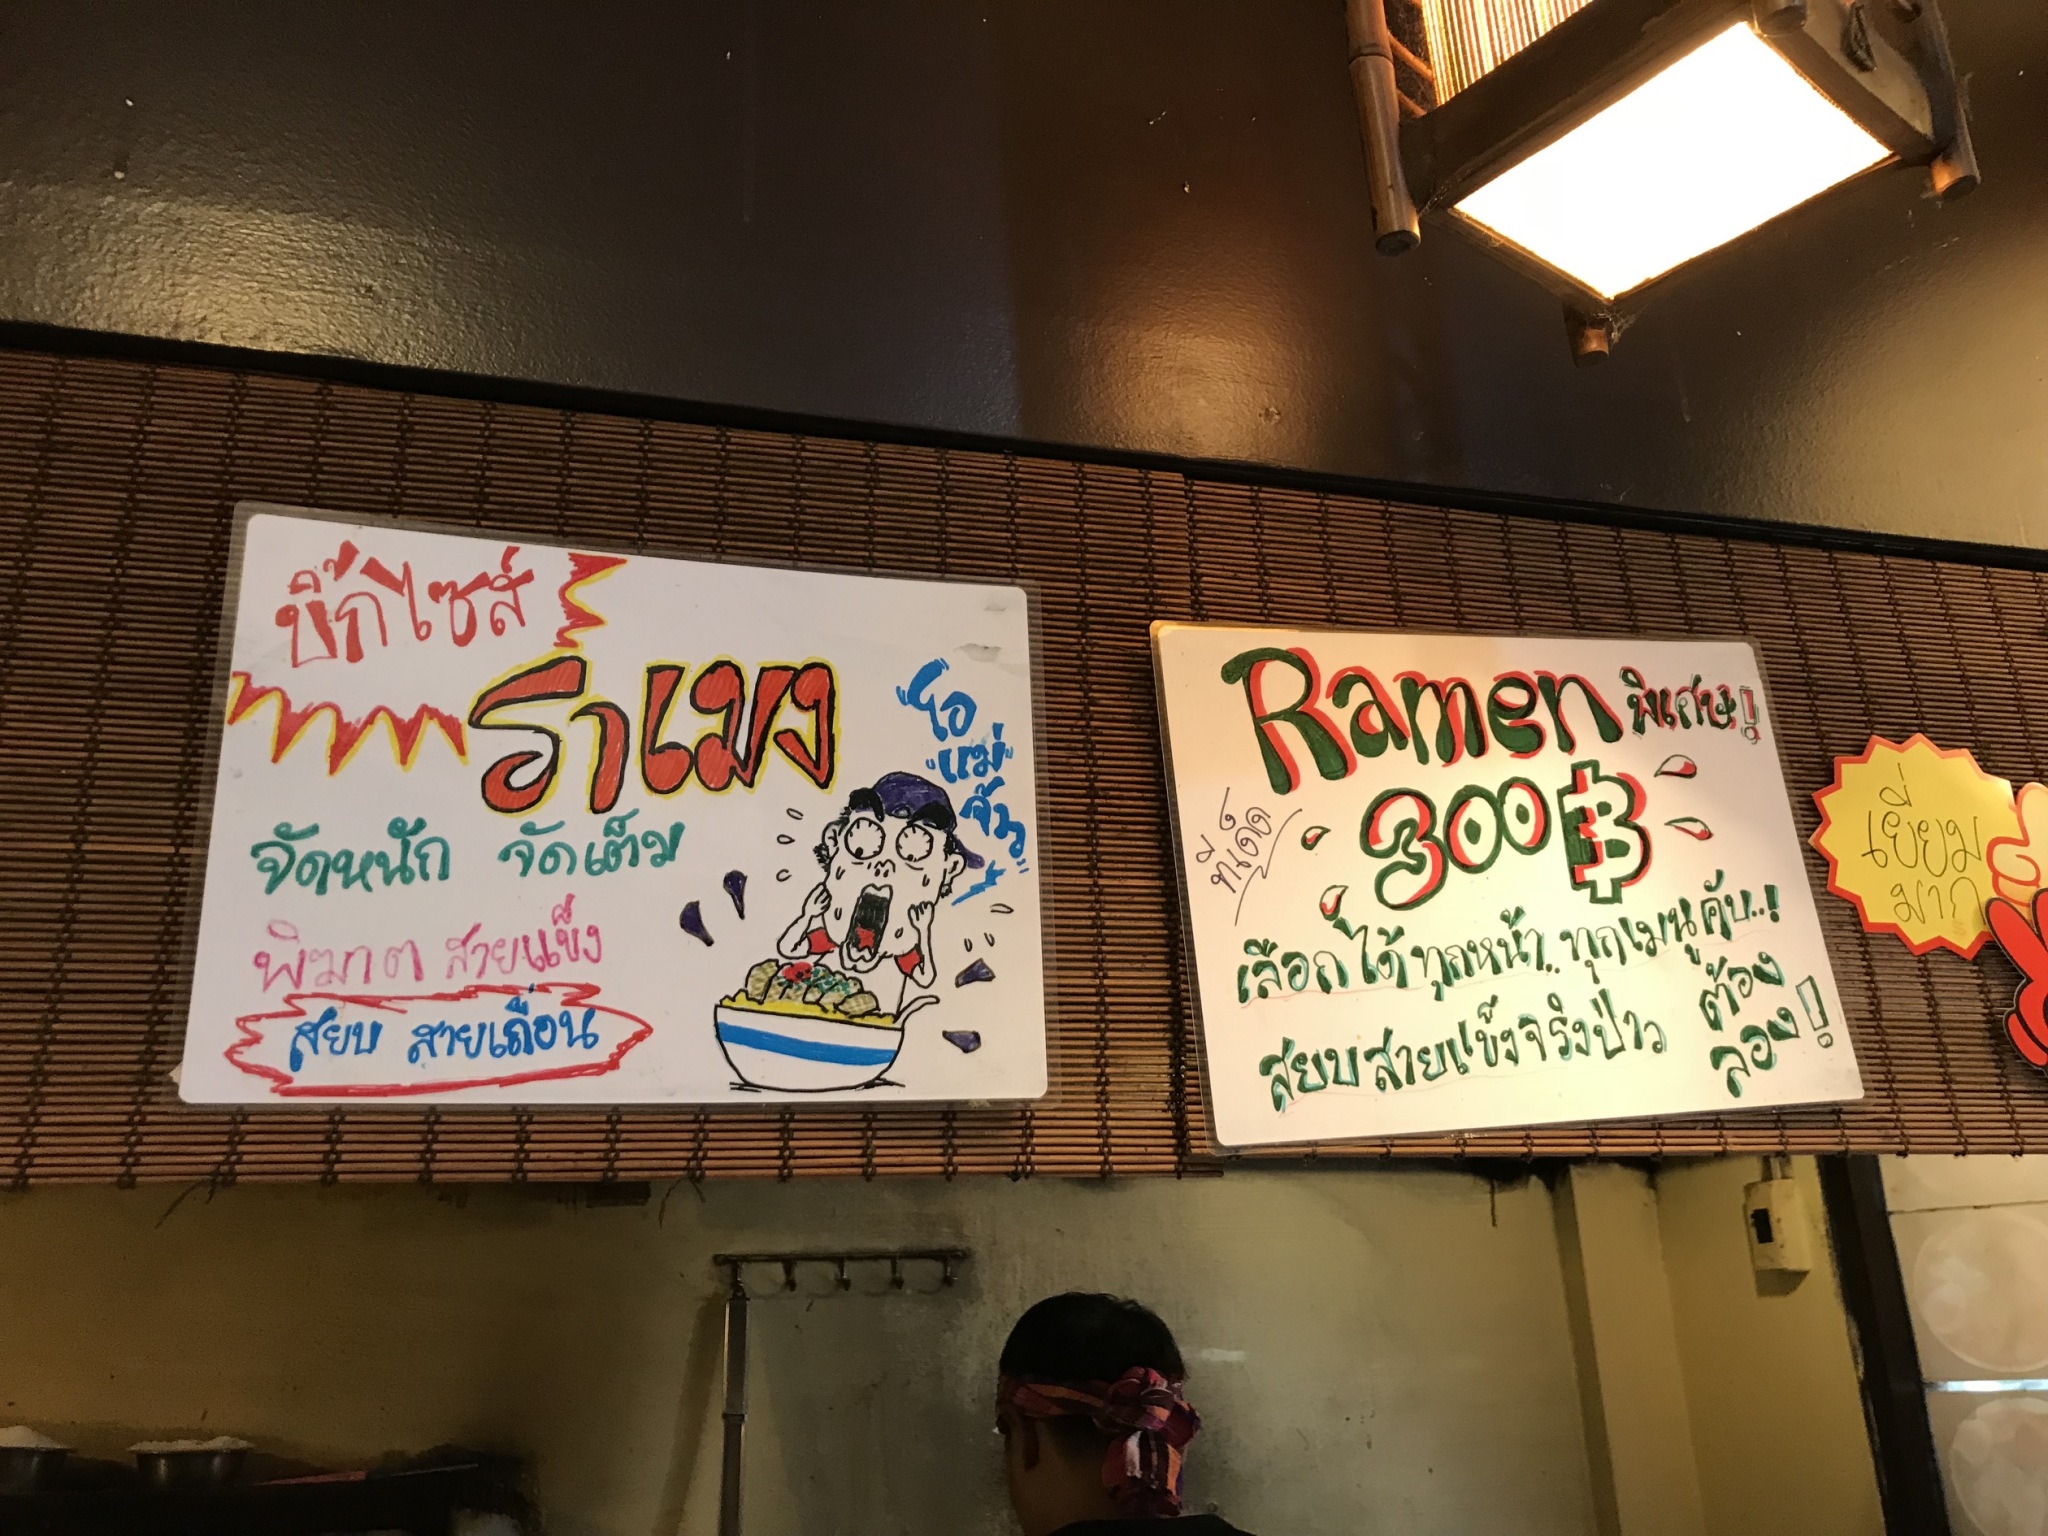 บิ๊กไซส์
ราเมง
จัดหนัก จัดเต็ม
พิฆาต สายแข็ง
สยบ สายเถื่อน
"โอ
"แม่"
จ้าว"
Ramen พิเศษ!
ทีเด็ด
300฿
เลือกได้ทุกหน้า..ทุกเมนูคับ..!
สยบสายแข็งจริงป่าว
ต้อง
ลอง!
เยี่ยม
มาก